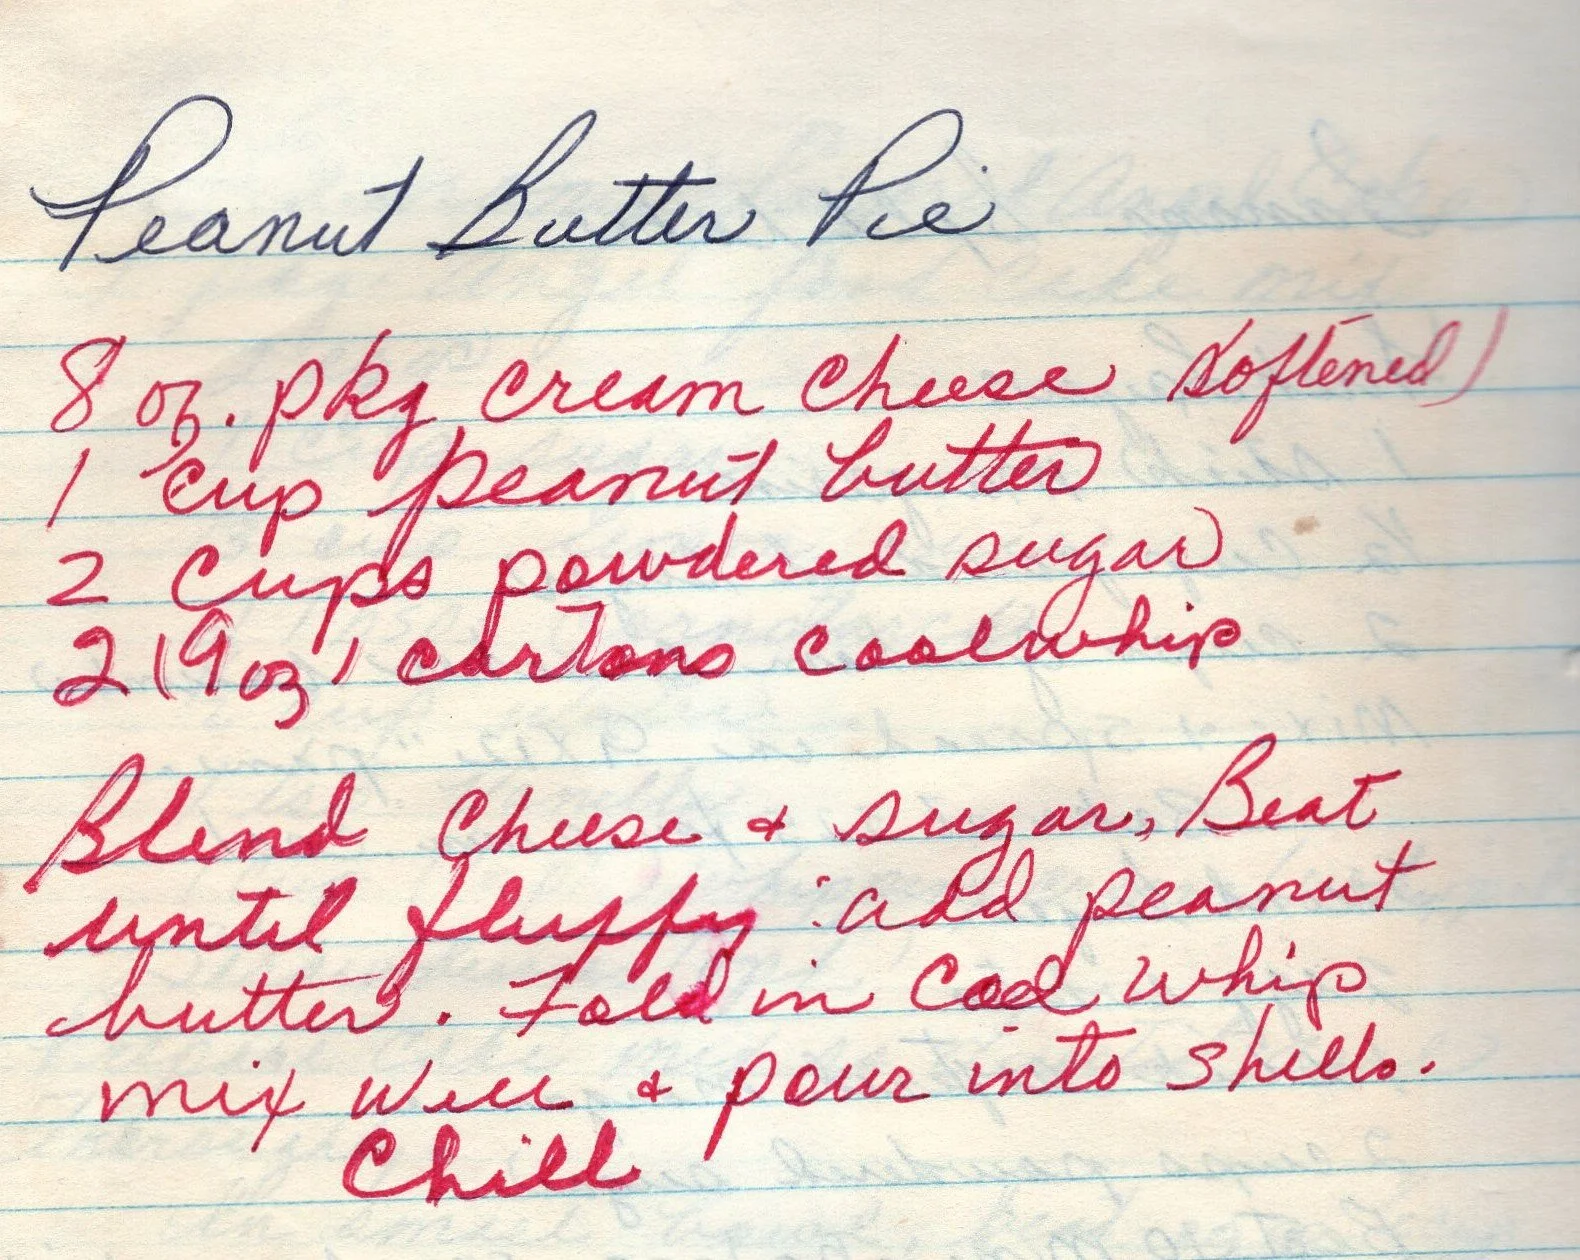 Peanut Butter Pie
8 oz. pkg cream cheese softened)
1 cup peanut butter
2 cups powdered sugar
2 (9 oz) cartons coolwhip
Blend cheese & sugar, Beat
until fluffy : add peanut
butter. Fold in cool whip
mix well & pour into shells.
Chill